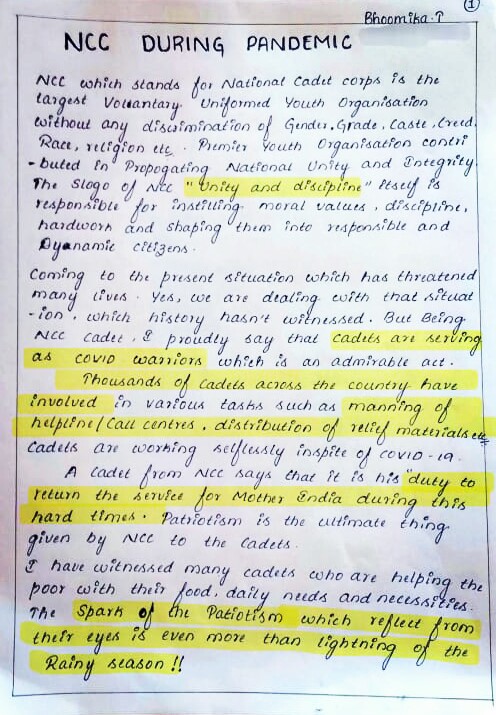 1
Bhoomika.T
NCC DURING PANDEMIC
NCC which stands for National Cadet corps is the
largest Vountary Uniformed Youth Organisation
without any discrimination of Gender, Grade, Caste, Creed,
Race, religion etc. Premier Youth Organisation contri
-buted in Propogating National Unity and Integrity.
The Slogo of NCC "Unity and discipline" itself is
responsible for instilling moral values, discipline,
hardwork and shaping them into responsible and
Dyanamic citizens.
Coming to the present situation which has threatened
many lives. Yes, we are dealing with that situat
-ion, which history hasn't witnessed. But Being
NCC cadet, I proudly say that cadets are serving
as covid warriors which is an admirable act.
Thousands of Cadets across the country have
involved in various tasks such as manning of
helpline/call centres, distribution of relief materials etc
Cadets are working selflessly inspite of covid-19.
A Cadet from NCC says that it is his "duty to
return the service for Mother India during this
hard times. Patriotism is the ultimate thing
given by NCC to the Cadets.
I have witnessed many cadets who are helping the
poor with their food, daily needs and necessities.
The Spark of the Patiotism which reflect from
their eyes is even more than lightning of the
Rainy season!!